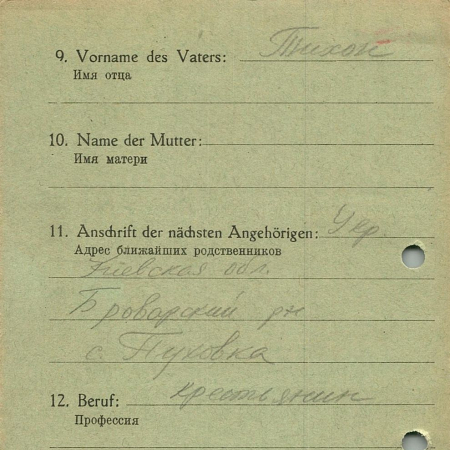 9. Vorname des Vaters: Тихон
Имя отца
10. Name der Mutter:
Имя матери
11. Anschrift der nächsten Angehörigen: Укр.
Адрес ближайших родственников
Киевская обл.
Броварский рн
с. Пуховка
12. Beruf: крестьянин
Профессия